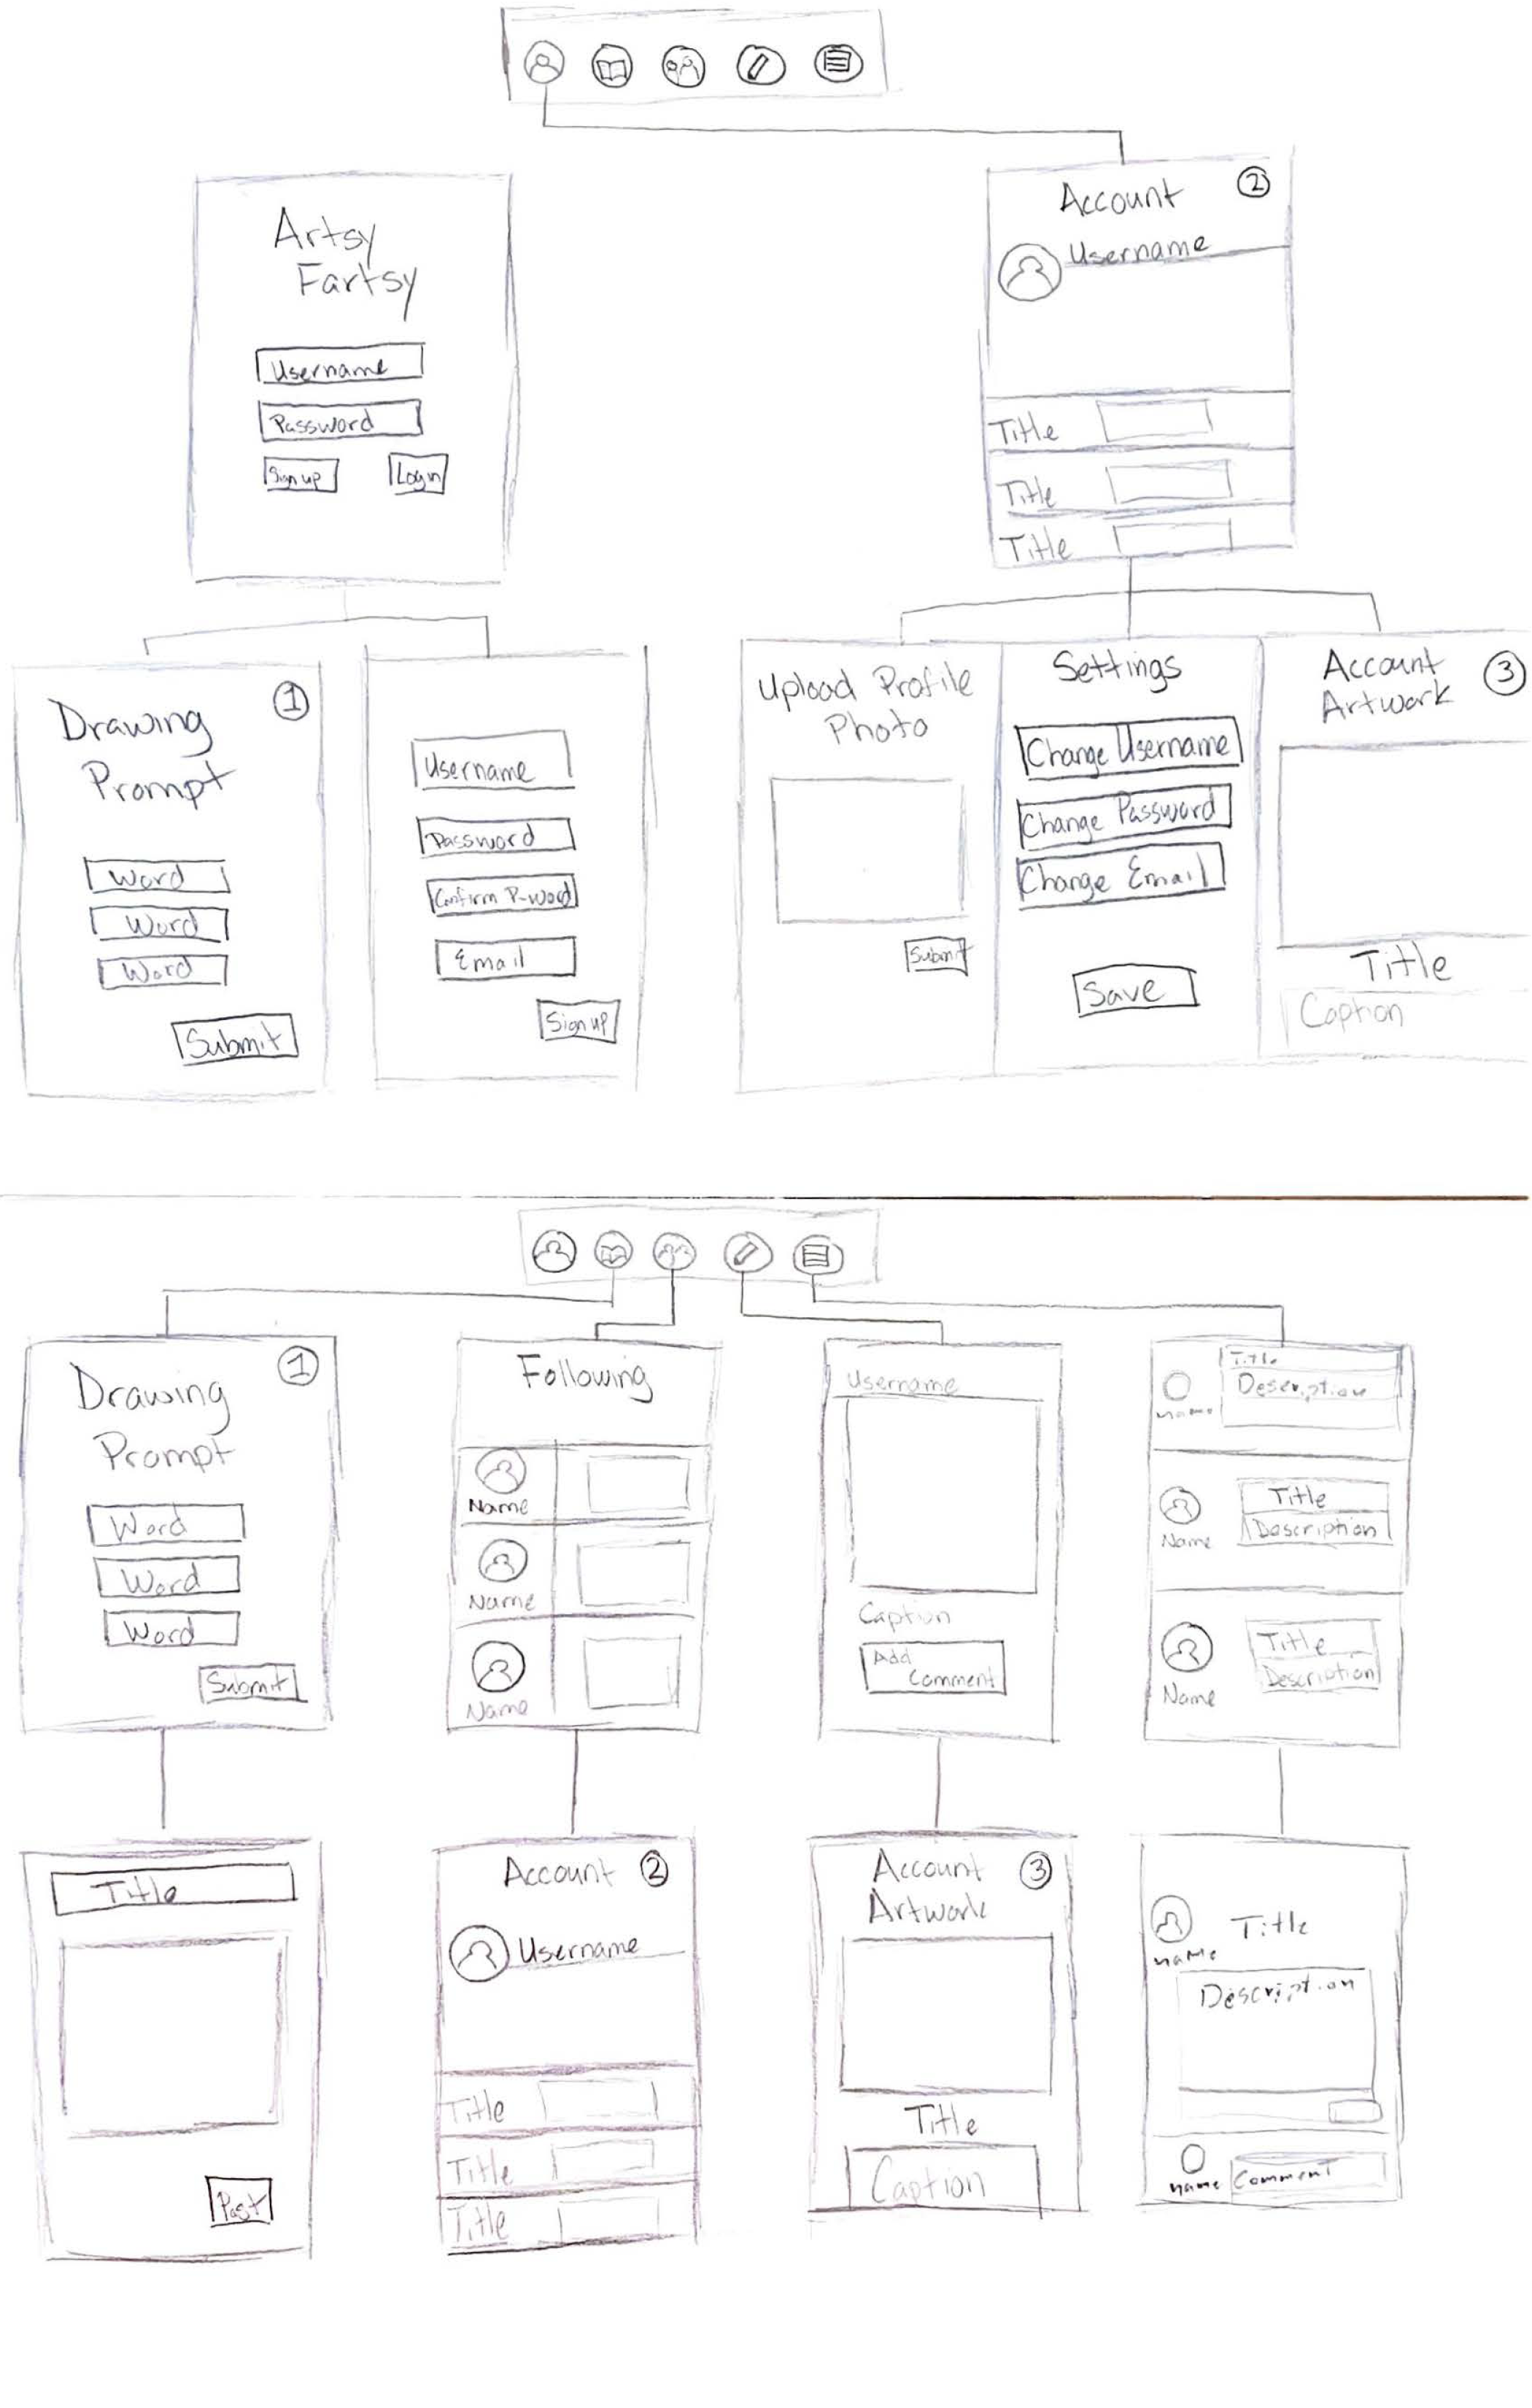 Account
②
Username
Title
Title
Title
Artsy
Fartsy
Username
Password
Sign up
Login
Drawing
Prompt
①
Word
Word
Word
Submit
Username
Password
Confirm P-word
Email
Sign up
Upload Profile
Photo
Submit
Settings
Change Username
Change Password
Change Email
Save
Account
Artwork
③
Title
Caption
Drawing
Prompt
①
Word
Word
Word
Submit
Following
Name
Name
Name
Username
Caption
Add
Comment
Title
Description
name
Title
Description
Name
Title
Description
Name
Title
Post
Account ②
Username
Title
Title
Title
Account
Artwork
③
Title
Caption
name
Title
Description
name
Comment